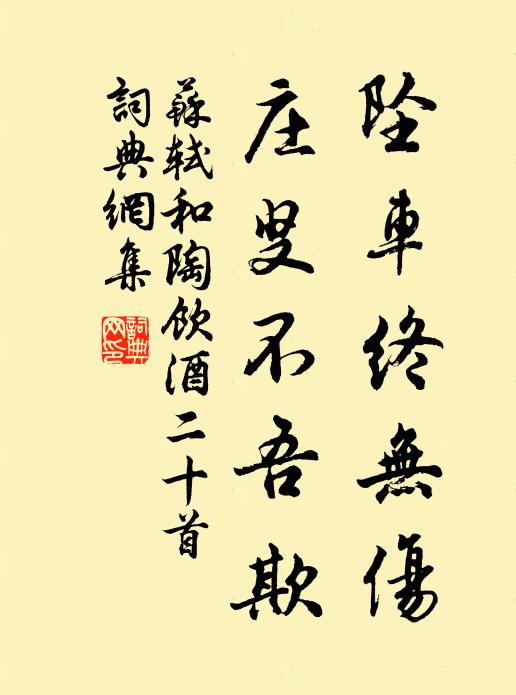 坠車終無傷
庄叟不吾欺
蘇軾和陶飲酒二十首
詞典網集
詞典网印